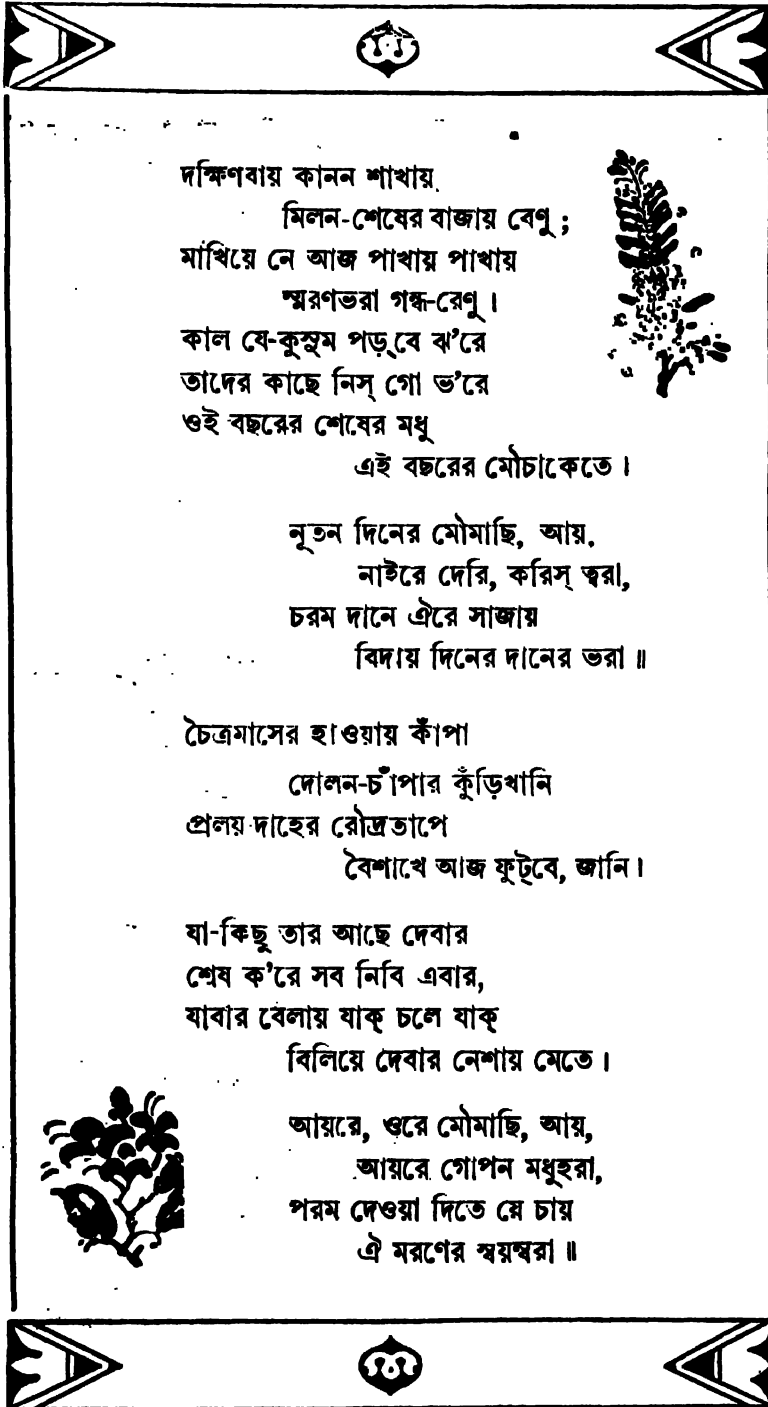 দক্ষিণবায় কানন শাখায়
মিলন-শেষের বাজায় বেণু ;
মাখিয়ে নে আজ পাখায় পাখায়
স্মরণভরা গন্ধ-রেণু ।
কাল যে-কুসুম পড়্‌বে ঝ'রে
তাদের কাছে নিস্ গো ভ'রে
ওই বছরের শেষের মধু
এই বছরের মৌচাকেতে ।
নূতন দিনের মৌমাছি, আয়.
নাইরে দেরি, করিস্ ত্বরা,
চরম দানে ঐরে সাজায়
বিদায় দিনের দানের ভরা ॥
চৈত্রমাসের হাওয়ায় কাঁপা
দোলন-চাঁপার কুঁড়িখানি
প্রলয় দাহের রৌদ্রতাপে
বৈশাখে আজ ফুট্‌বে, জানি ।
যা-কিছু তার আছে দেবার
শেষ ক'রে সব নিবি এবার,
যাবার বেলায় যাক্ চলে যাক্
বিলিয়ে দেবার নেশায় মেতে ।
আয়রে, ওরে মৌমাছি, আয়,
আয়রে গোপন মধুহরা,
পরম দেওয়া দিতে যে চায়
ঐ মরণের স্বয়ম্বরা ॥